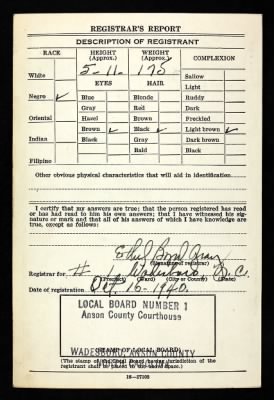 REGISTRAR'S REPORT
DESCRIPTION OF REGISTRANT
RACE
HEIGHT (Approx.)
WEIGHT (Approx.)
COMPLEXION
5-11.
175
White
Sallow
EYES
HAIR
Light
Negro ✓
Blue
Blonde
Ruddy
Gray
Red
Dark
Oriental
Hazel
Brown
Freckled
Brown ✓
Black ✓
Light brown ✓
Indian
Black
Gray
Dark brown
Bald
Black
Filipino
Other obvious physical characteristics that will aid in identification
I certify that my answers are true; that the person registered has read
or has had read to him his own answers; that I have witnessed his
signature or mark and that all of his answers of which I have knowledge are
true, except as follows:
Ethel Bond Gray
(Signature of registrar)
Registrar for # 1 Wadesboro N. C.
(Precinct) (Ward) (City or County) (State)
Date of registration Oct. 16-1940.
LOCAL BOARD NUMBER 1
Anson County Courthouse
(STAMP OF LOCAL BOARD)
WADESBORO, ANSON COUNTY
(The stamp of the Local Board having jurisdiction of the
registrant shall be placed in the above space.)